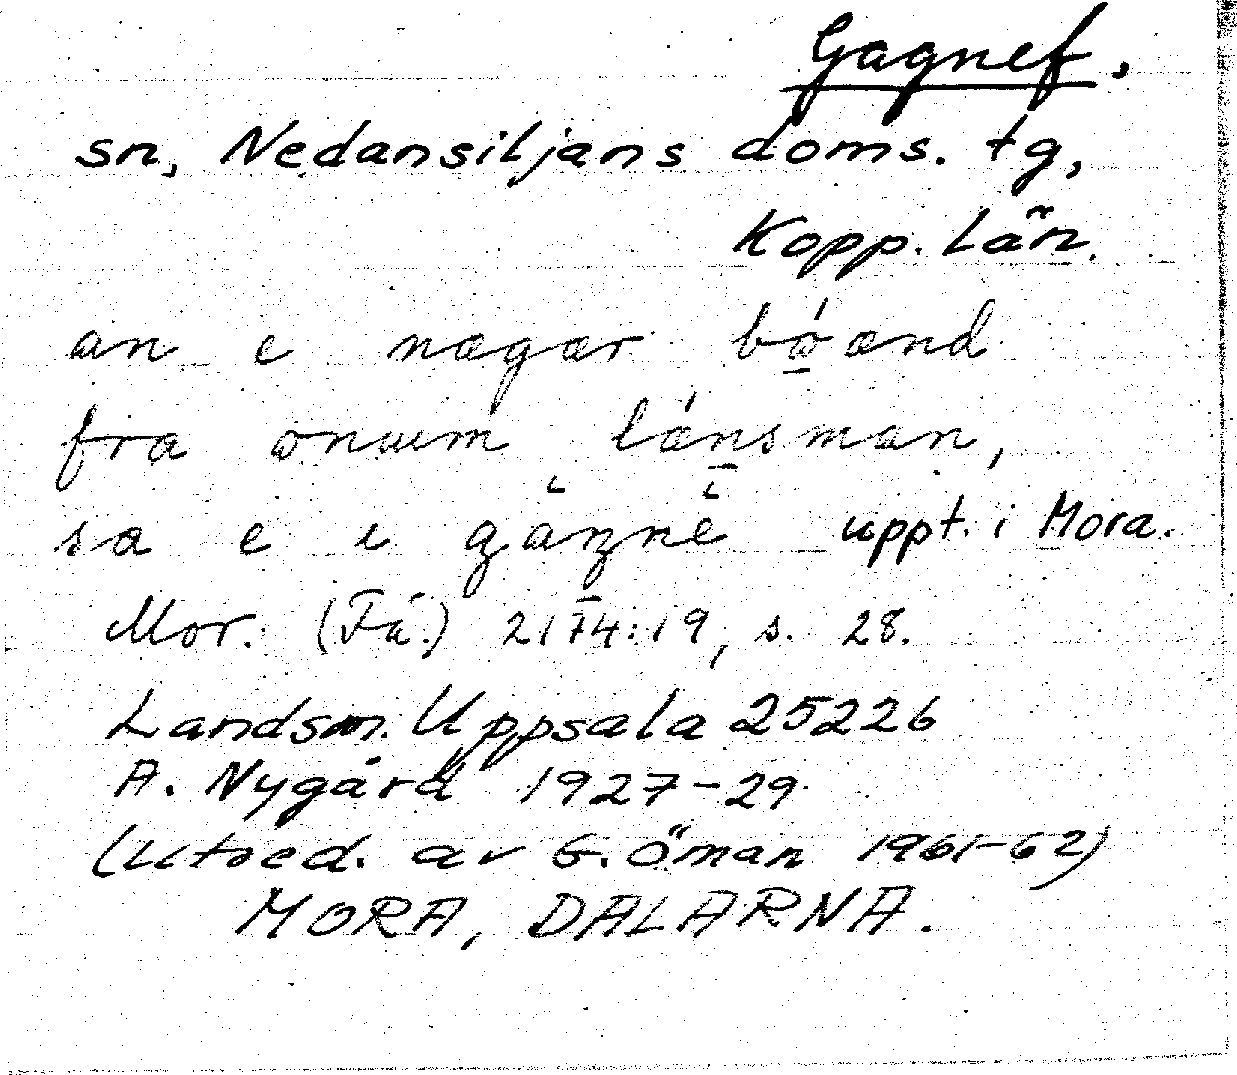 Gagnef,
sn, Nedansiljans doms. tg,
Kopp. län.
an e nægær
fra
sa e
uppt. i Mora.
Mor. (Få.) 21 T4:19, s. 28.
Landsm. Uppsala 25226
A. Nygård 1927-29
(Utoed. av G. Öman 1961-62)
MORA, DALARNA.